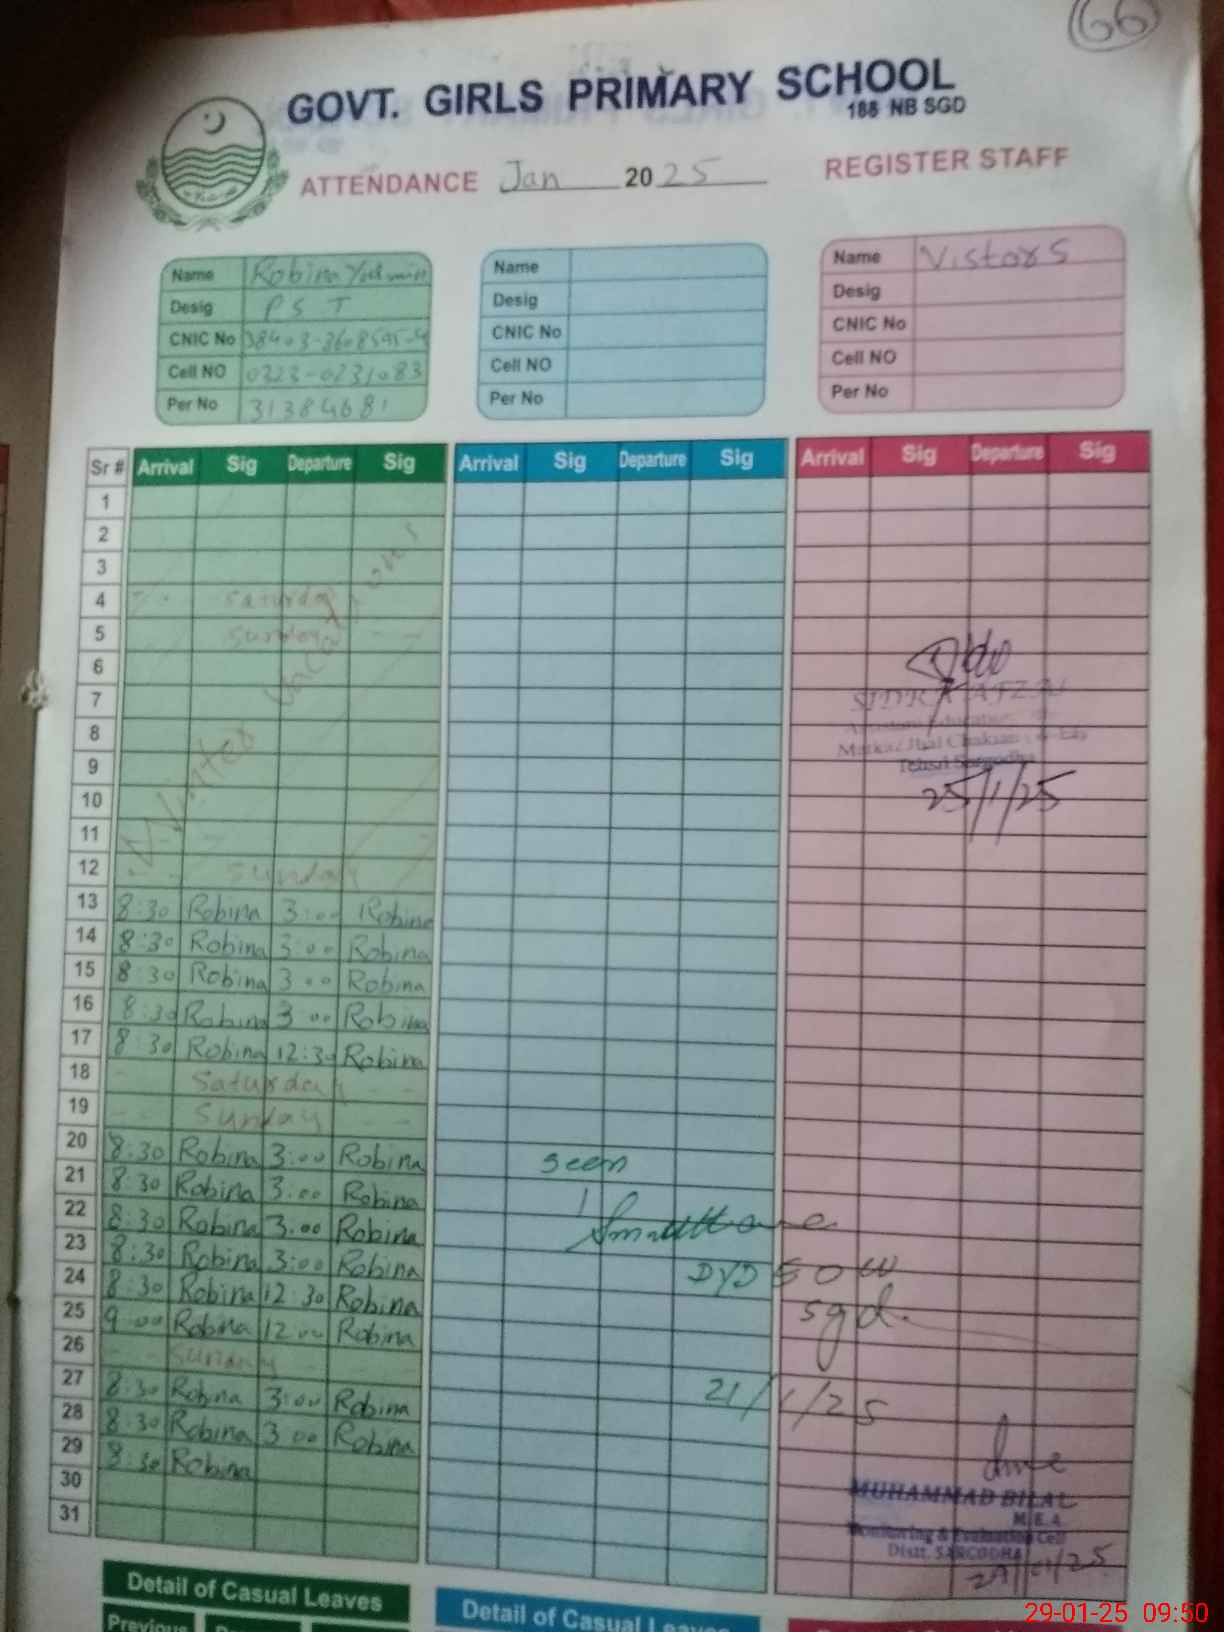 66
GOVT. GIRLS PRIMARY SCHOOL
188 NB SGD
ATTENDANCE Jan 2025 REGISTER STAFF
Name Robina Yasmin
Desig P S T
CNIC No
Cell NO 0323-0231083
Per No 31384681
Name
Desig
CNIC No
Cell NO
Per No
Name Vistors
Desig
CNIC No
Cell NO
Per No
Sr # Arrival Sig Departure Sig Arrival Sig Departure Sig Arrival Sig Departure Sig
1
2
3
4 Saturday
5 Sunday
6
7
8
9
10
11
Winter Vacations
12 Sunday
13 8:30 Robina 3:00 Robina
14 8:30 Robina 3:00 Robina
15 8:30 Robina 3:00 Robina
16 8:30 Robina 3:00 Robina
17 8:30 Robina 12:30 Robina
18 Saturday
19 Sunday
20 8:30 Robina 3:00 Robina
21 8:30 Robina 3:00 Robina
22 8:30 Robina 3:00 Robina
23 8:30 Robina 3:00 Robina
24 8:30 Robina 12:30 Robina
25 9:00 Robina 12:00 Robina
26 Sunday
27 8:30 Robina 3:00 Robina
28 8:30 Robina 3:00 Robina
29 8:30 Robina
30
31
seen
DYDEOW
sgd.
21/1/25
Tehsil Sargodha
25/1/25
MUHAMMAD BILAL
M.E.A
Monitoring & Evaluation Cell
Distt. SARGODHA
29/01/25
Detail of Casual Leaves
Detail of Casual Leaves
Previous
29-01-25 09:50